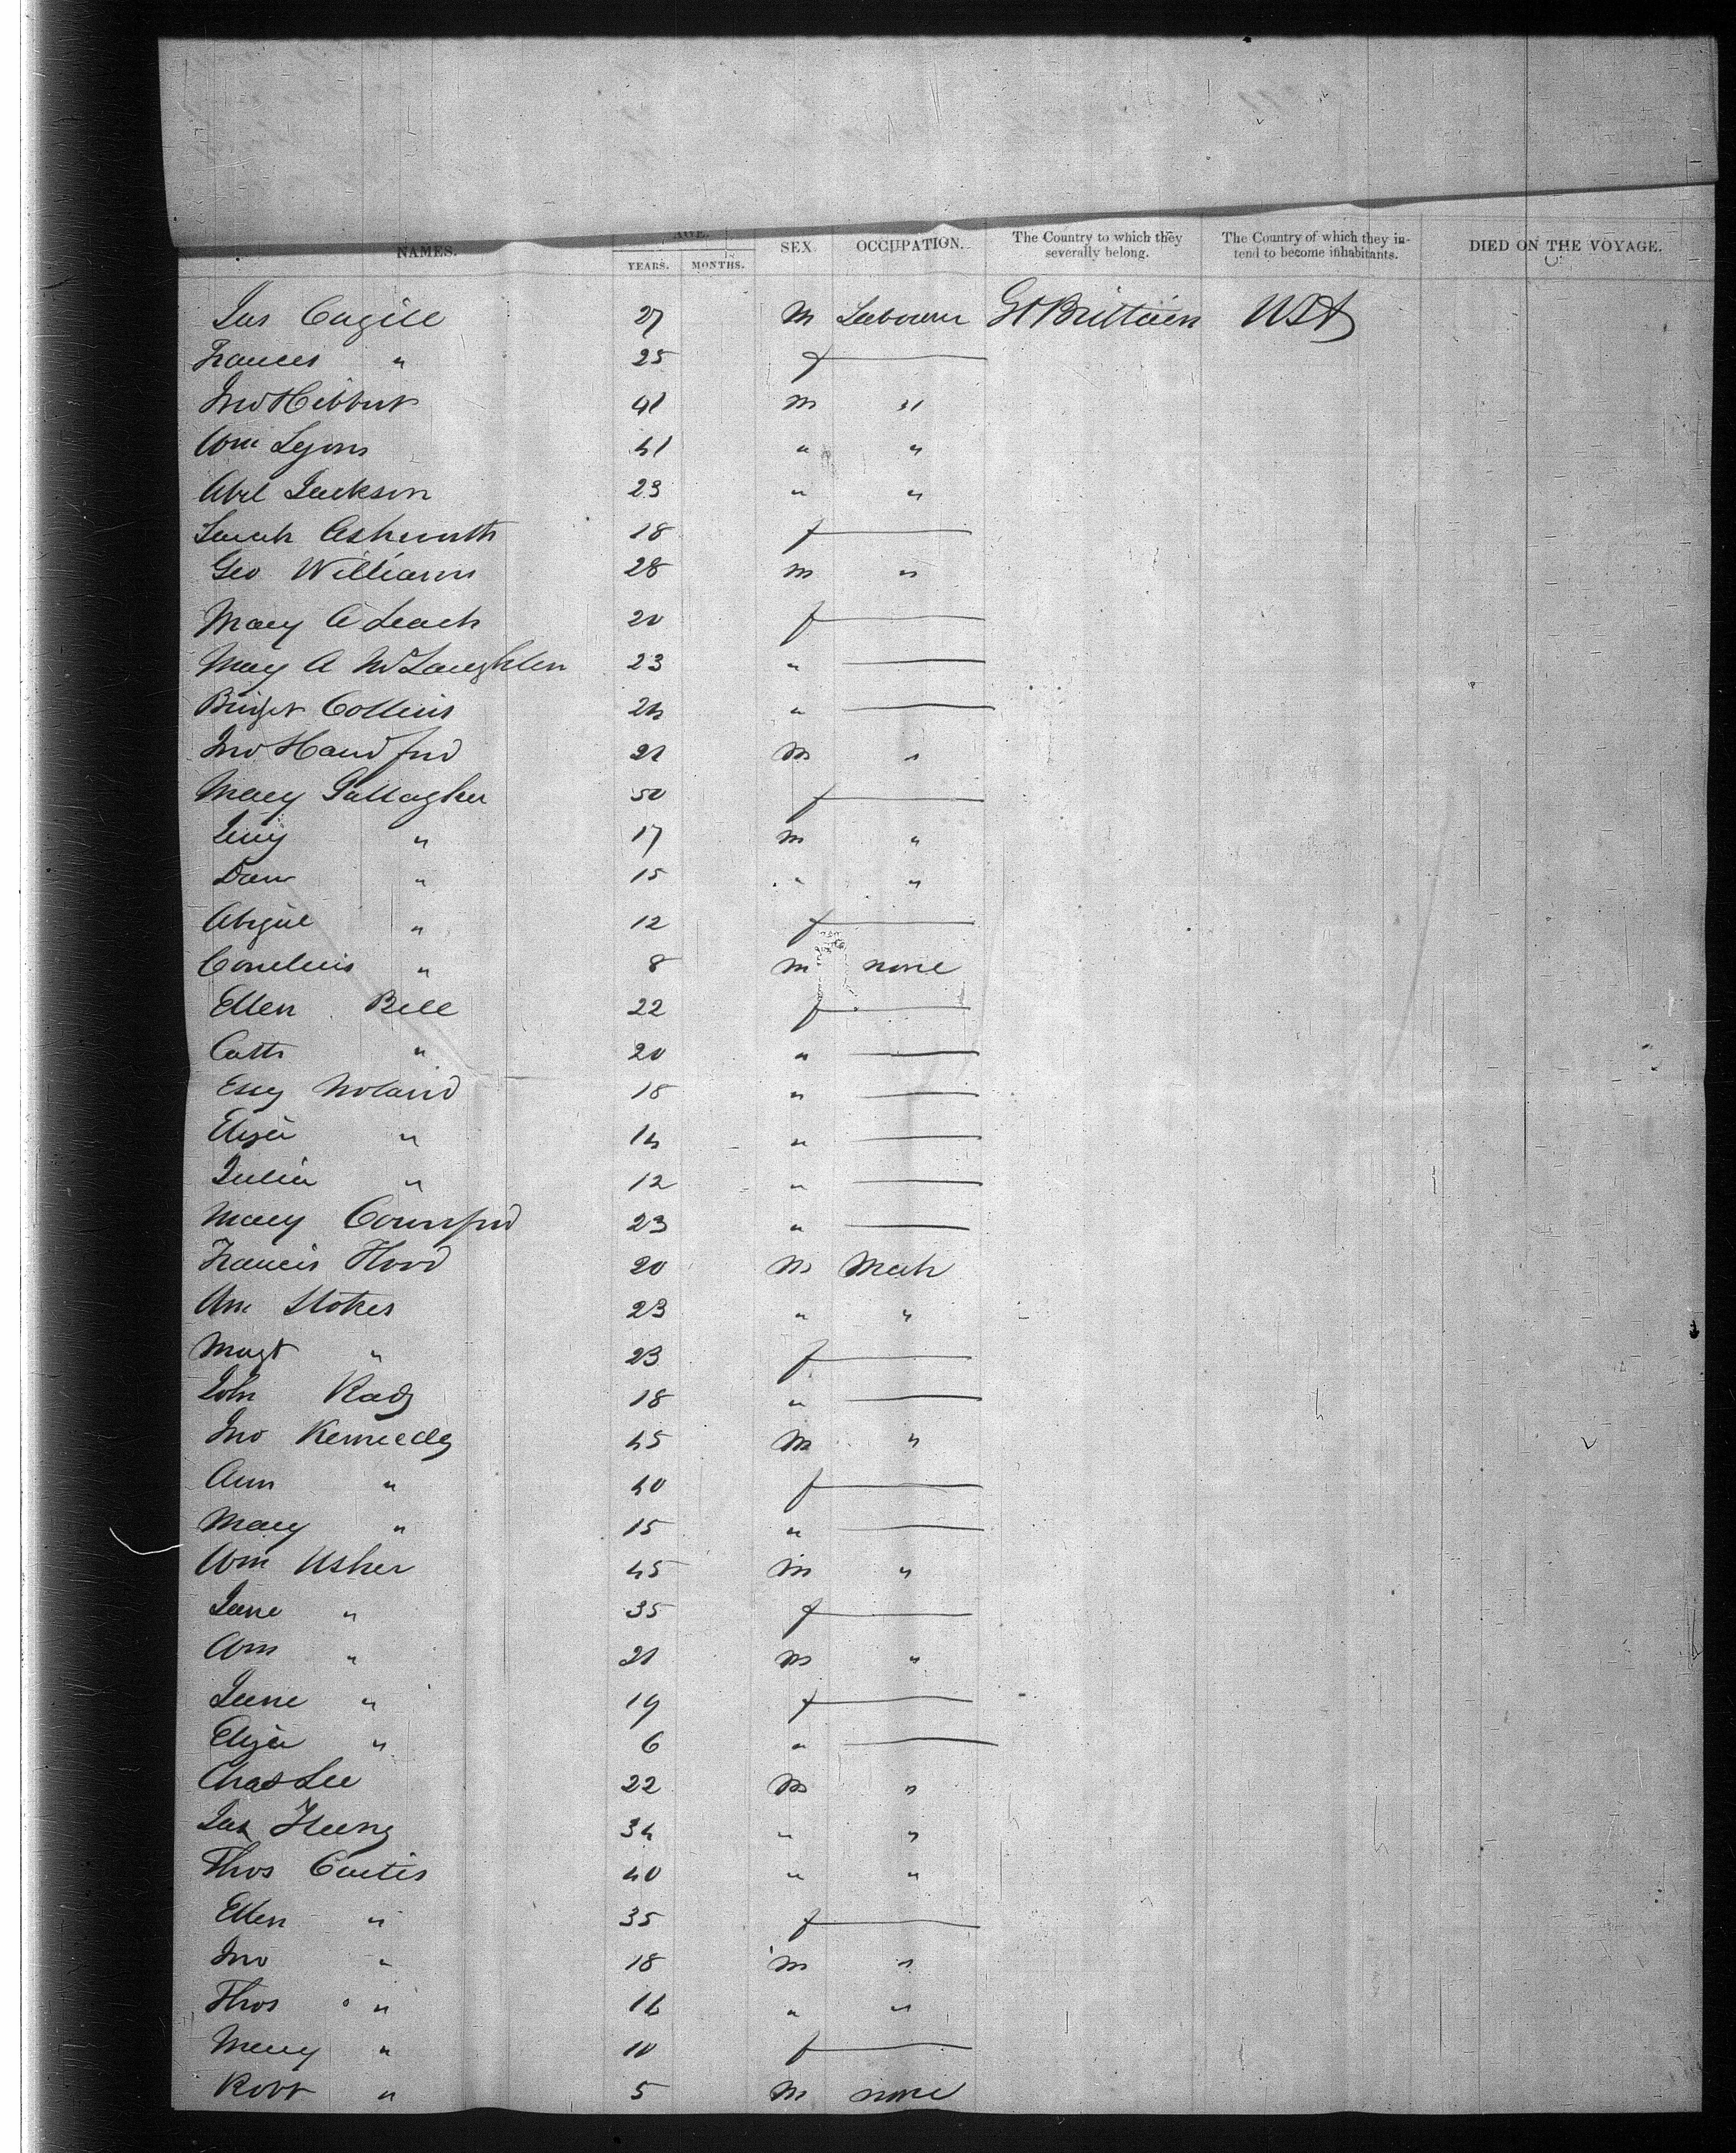 NAMES. AGE. YEARS. MONTHS. SEX. OCCUPATION. The Country to which they severally belong. The Country of which they intend to become inhabitants. DIED ON THE VOYAGE.
Jas Cargill 27 M Labourer Gt Brittain USA
Frances " 25 f —
Jno Hibbert 41 M "
Wm Lyons 41 " "
Abel Jackson 23 " "
Sarah Ashworth 18 f —
Geo Williams 28 M "
Mary A Leach 20 f —
Mary A McLaughlin 23 " —
Bridget Collins 24 " —
Jno Handford 21 M "
Mary Gallagher 50 f —
17 M "
Dan " 15 " "
Abigail " 12 f —
Cornelius " 8 M none
Ellen Bell 22 f —
Cath " 20 " —
Essy Noland 18 " —
Eliza " 14 " —
Julia " 12 " —
Mary 23 " —
Francis Hood 20 M Mech
Stokes 23 " "
Magt " 23 f —
John 18 " —
Jno Kennedy 45 M "
Ann " 40 f —
Mary " 15 " —
Wm Usher 45 M "
Jane " 35 f —
Wm " 21 M "
Jane " 19 f —
Eliza " 6 " —
Chas Lee 22 M "
Jas 34 " "
Thos Curtis 40 " "
Ellen " 35 f —
Jno " 18 M "
Thos " 16 " "
Mary " 10 f —
Robt " 5 M none